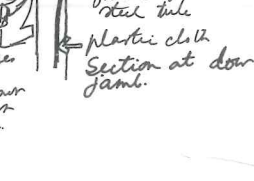 steel tube
plastic cloth
Section at door
jamb.